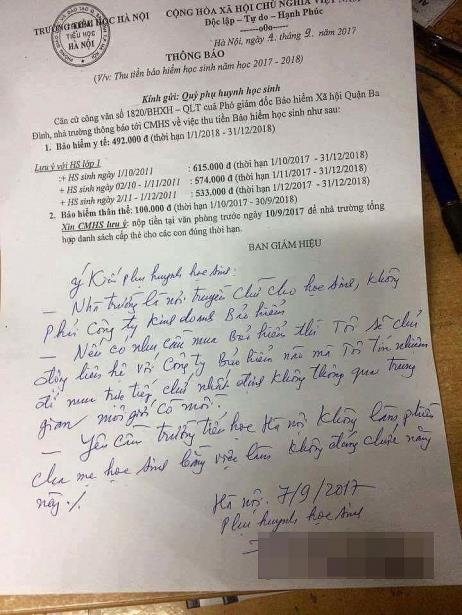 TRƯỜNG TIỂU HỌC HÀ NỘI
CỘNG HÒA XÃ HỘI CHỦ NGHĨA VIỆT
Độc lập – Tự do – Hạnh Phúc
-----o0o-----
TIỂU HỌC
HÀ NỘI
Hà Nội, ngày 4 tháng 9 năm 2017
THÔNG BÁO
(V/v: Thu tiền bảo hiểm học sinh năm học 2017 - 2018)
Kính gửi: Quý phụ huynh học sinh
Căn cứ công văn số 1820/BHXH – QLT cuả Phó giám đốc Bảo hiểm Xã hội Quận Ba
Đình, nhà trường thông báo tới CMHS về việc thu tiền Bảo hiểm học sinh như sau:
1. Bảo hiểm y tế: 492.000 đ (thời hạn 1/1/2018 - 31/12/2018)
Lưu ý với HS lớp 1
:+ HS sinh ngày 1/10/2011 : 615.000 đ (thời hạn 1/10/2017 - 31/12/2018)
+ HS sinh ngày 02/10 - 1/11/2011 : 574.000 đ (thời hạn 1/11/2017 - 31/12/2018)
+ HS sinh ngày 2/11 - 1/12/2011 : 533.000 đ (thời hạn 1/12/2017 - 31/12/2018)
2. Bảo hiểm thân thể: 100.000 đ (thời hạn 1/10/2017 - 30/9/2018)
Xin CMHS lưu ý: nộp tiền tại văn phòng trước ngày 10/9/2017 để nhà trường tổng
hợp danh sách cấp thẻ cho các con đúng thời hạn.
BAN GIÁM HIỆU
Ý Kiến phụ huynh học sinh:
– Nhà trường là nơi truyền chữ cho học sinh, không
phải Công ty kinh doanh Bảo hiểm
– Nếu có nhu cầu mua Bảo hiểm thì Tôi sẽ chủ
động liên hệ với Công ty Bảo hiểm nào mà Tôi Tín nhiệm
để mua trực tiếp, chứ nhất định không thông qua trung
gian môi giới có mồi.
– Yêu cầu trường tiểu học Hà Nội không làm phiền
cha mẹ học sinh bằng việc làm không đúng chức năng
này ./.
Hà nội. 7/9/2017
Phụ huynh học sinh